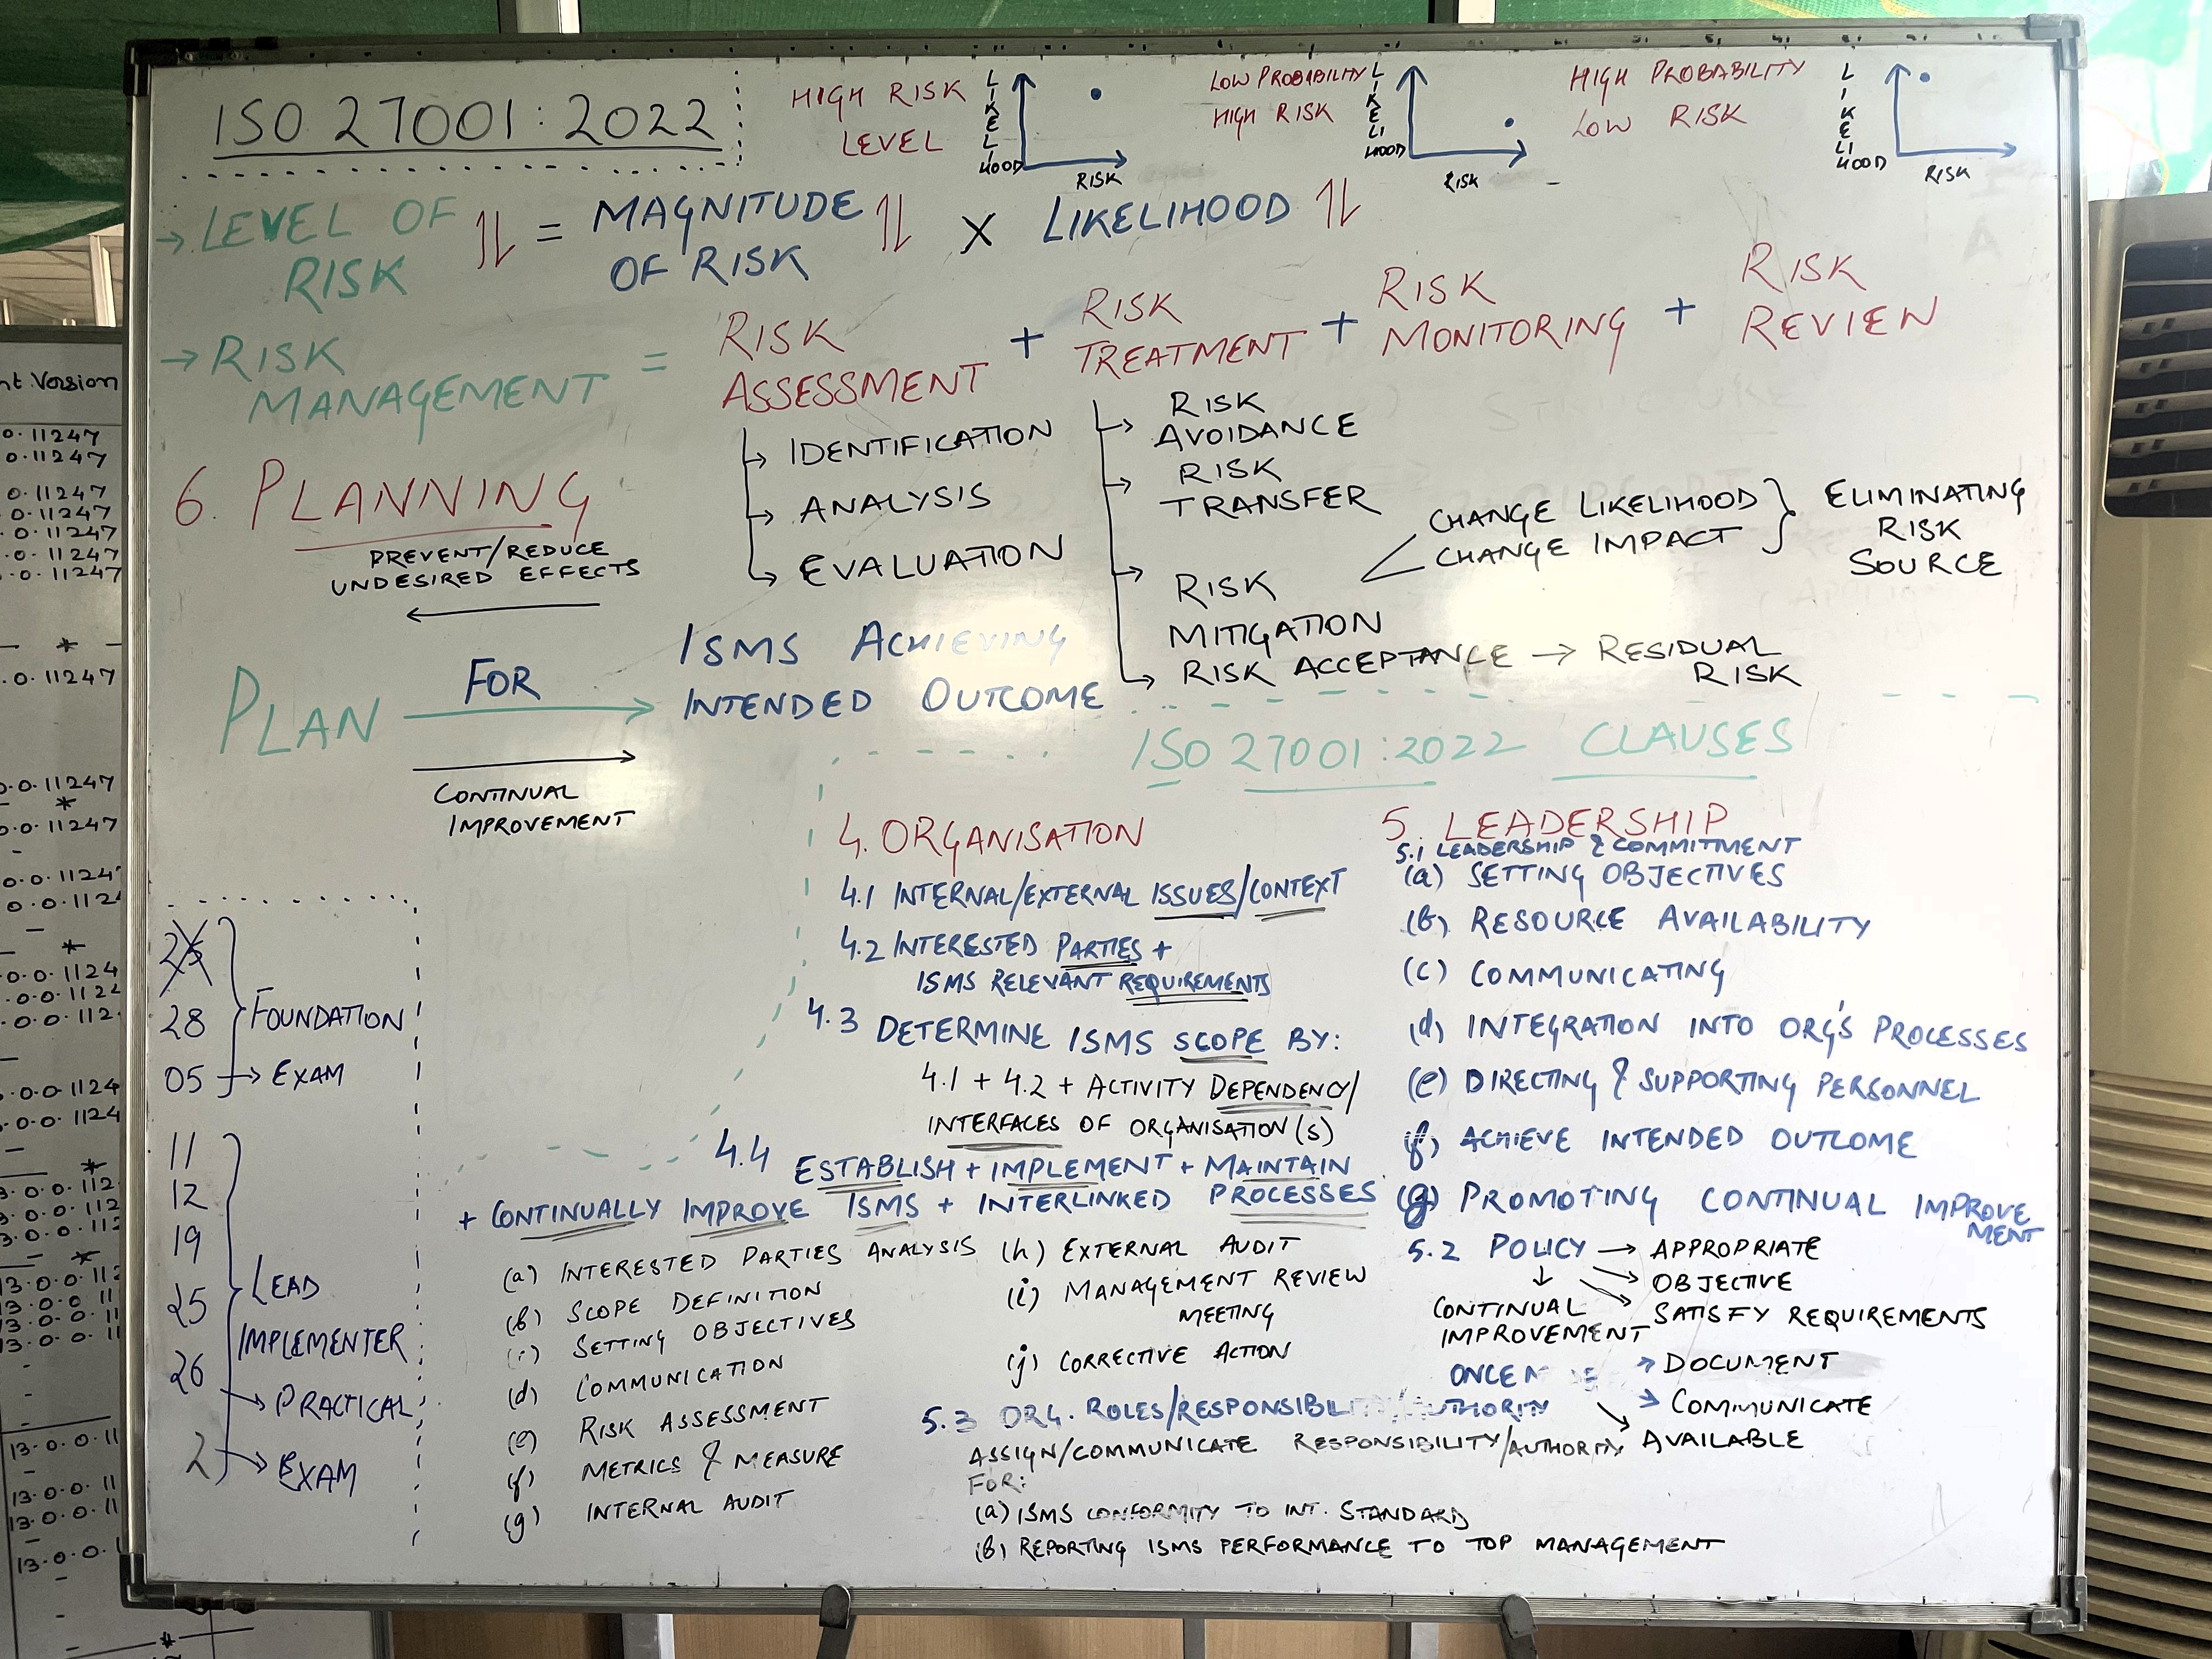 ISO 27001:2022
HIGH RISK
LEVEL
LIKELIHOOD
RISK
LOW PROBABILITY
HIGH RISK
LIKELIHOOD
RISK
HIGH PROBABILITY
LOW RISK
LIKELIHOOD
RISK
→ LEVEL OF RISK ↑↓ = MAGNITUDE OF RISK ↑↓ X LIKELIHOOD ↑↓
→ RISK MANAGEMENT = RISK ASSESSMENT + RISK TREATMENT + RISK MONITORING + RISK REVIEW
→ IDENTIFICATION
→ ANALYSIS
→ EVALUATION
→ RISK AVOIDANCE
→ RISK TRANSFER
→ RISK MITIGATION
CHANGE LIKELIHOOD
CHANGE IMPACT
} ELIMINATING
RISK
SOURCE
→ RISK ACCEPTANCE → RESIDUAL
RISK
6. PLANNING
PREVENT/REDUCE
UNDESIRED EFFECTS
PLAN FOR → ISMS ACHIEVING
INTENDED OUTCOME
CONTINUAL
IMPROVEMENT
ISO 27001:2022 CLAUSES
4. ORGANISATION
4.1 INTERNAL/EXTERNAL ISSUES/CONTEXT
4.2 INTERESTED PARTIES +
ISMS RELEVANT REQUIREMENTS
4.3 DETERMINE ISMS SCOPE BY:
4.1 + 4.2 + ACTIVITY DEPENDENCY/
INTERFACES OF ORGANISATION(S)
4.4 ESTABLISH + IMPLEMENT + MAINTAIN
+ CONTINUALLY IMPROVE ISMS + INTERLINKED PROCESSES
(a) INTERESTED PARTIES ANALYSIS
(b) SCOPE DEFINITION
SETTING OBJECTIVES
(d) COMMUNICATION
(e) RISK ASSESSMENT
(f) METRICS & MEASURE
(g) INTERNAL AUDIT
(h) EXTERNAL AUDIT
(i) MANAGEMENT REVIEW
MEETING
(j) CORRECTIVE ACTION
5. LEADERSHIP
5.1 LEADERSHIP & COMMITMENT
(a) SETTING OBJECTIVES
(b) RESOURCE AVAILABILITY
(c) COMMUNICATING
(d) INTEGRATION INTO ORG'S PROCESSES
(e) DIRECTING & SUPPORTING PERSONNEL
(f) ACHIEVE INTENDED OUTCOME
(g) PROMOTING CONTINUAL IMPROVE
MENT
5.2 POLICY → APPROPRIATE
OBJECTIVE
SATISFY REQUIREMENTS
CONTINUAL
IMPROVEMENT
ONCE
→ DOCUMENT
→ COMMUNICATE
AVAILABLE
5.3 ORG. ROLES/RESPONSIBILITY/AUTHORITY
ASSIGN/COMMUNICATE RESPONSIBILITY/AUTHORITY
FOR:
(a) ISMS CONFORMITY TO INT. STANDARD
(b) REPORTING ISMS PERFORMANCE TO TOP MANAGEMENT
25
28
FOUNDATION
05 → EXAM
11
12
19
25
26
LEAD
IMPLEMENTER
→ PRACTICAL
2 → EXAM
nt Version
0.11247
0.11247
0.11247
0.11247
0.11247
0.11247
0.11247
*
.0.11247
0.0.11247
*
0.0.11247